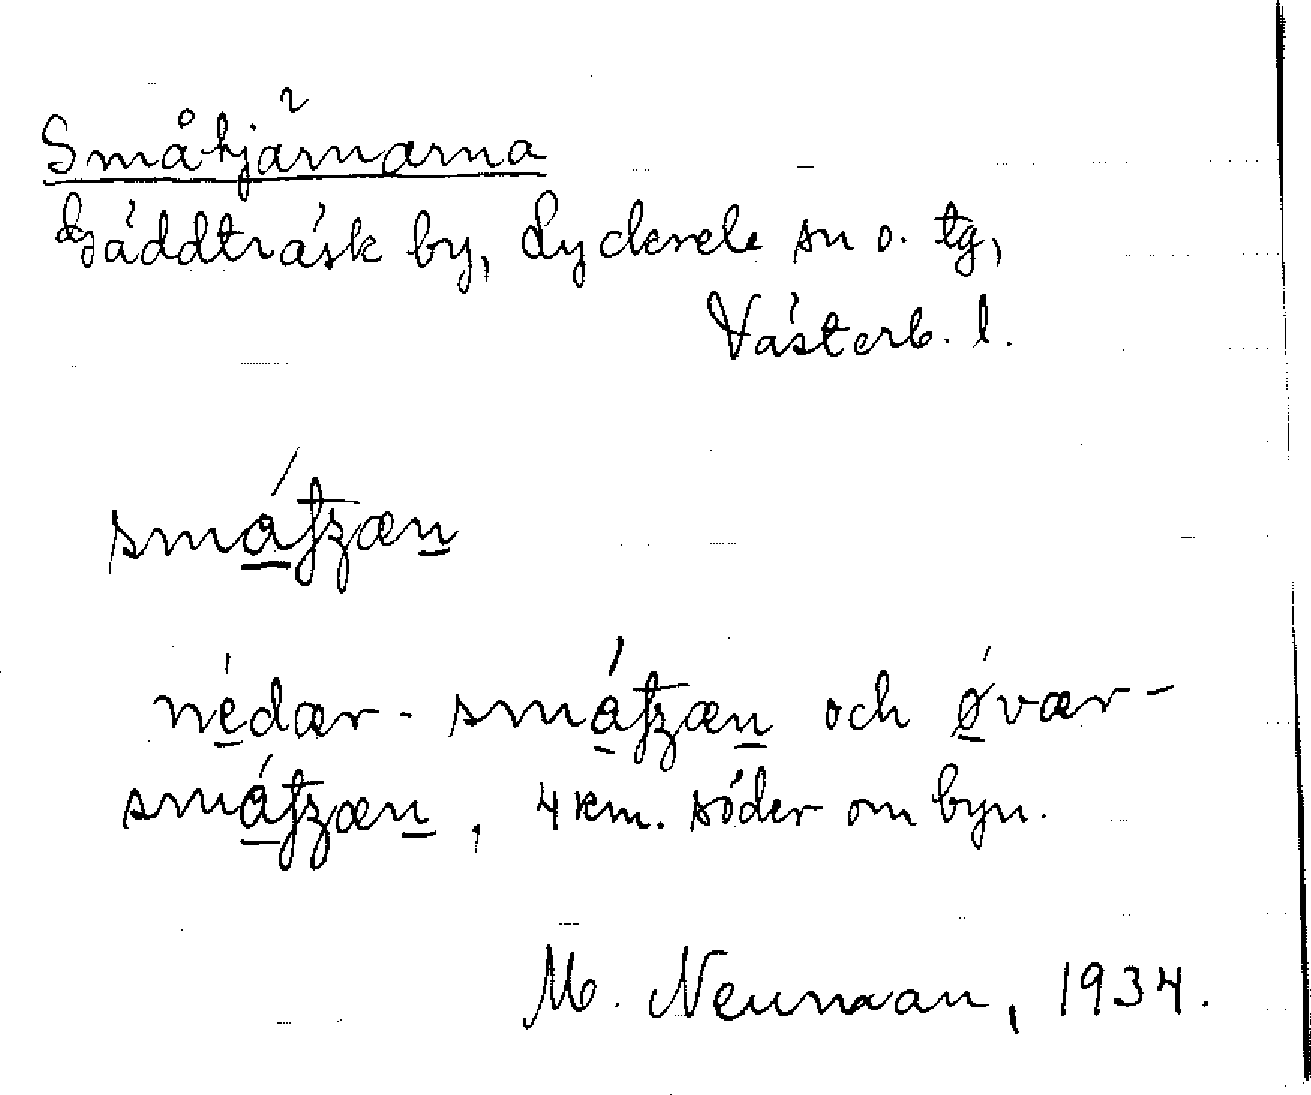 Småtjärnarna
Gäddträsk by, Lycksele sn o. tg,
Västerb. l.
småtʒæn
nedær- småtʒæn och øvær-
småtʒæn, 4 km. söder om byn.
M. Neuman, 1934.